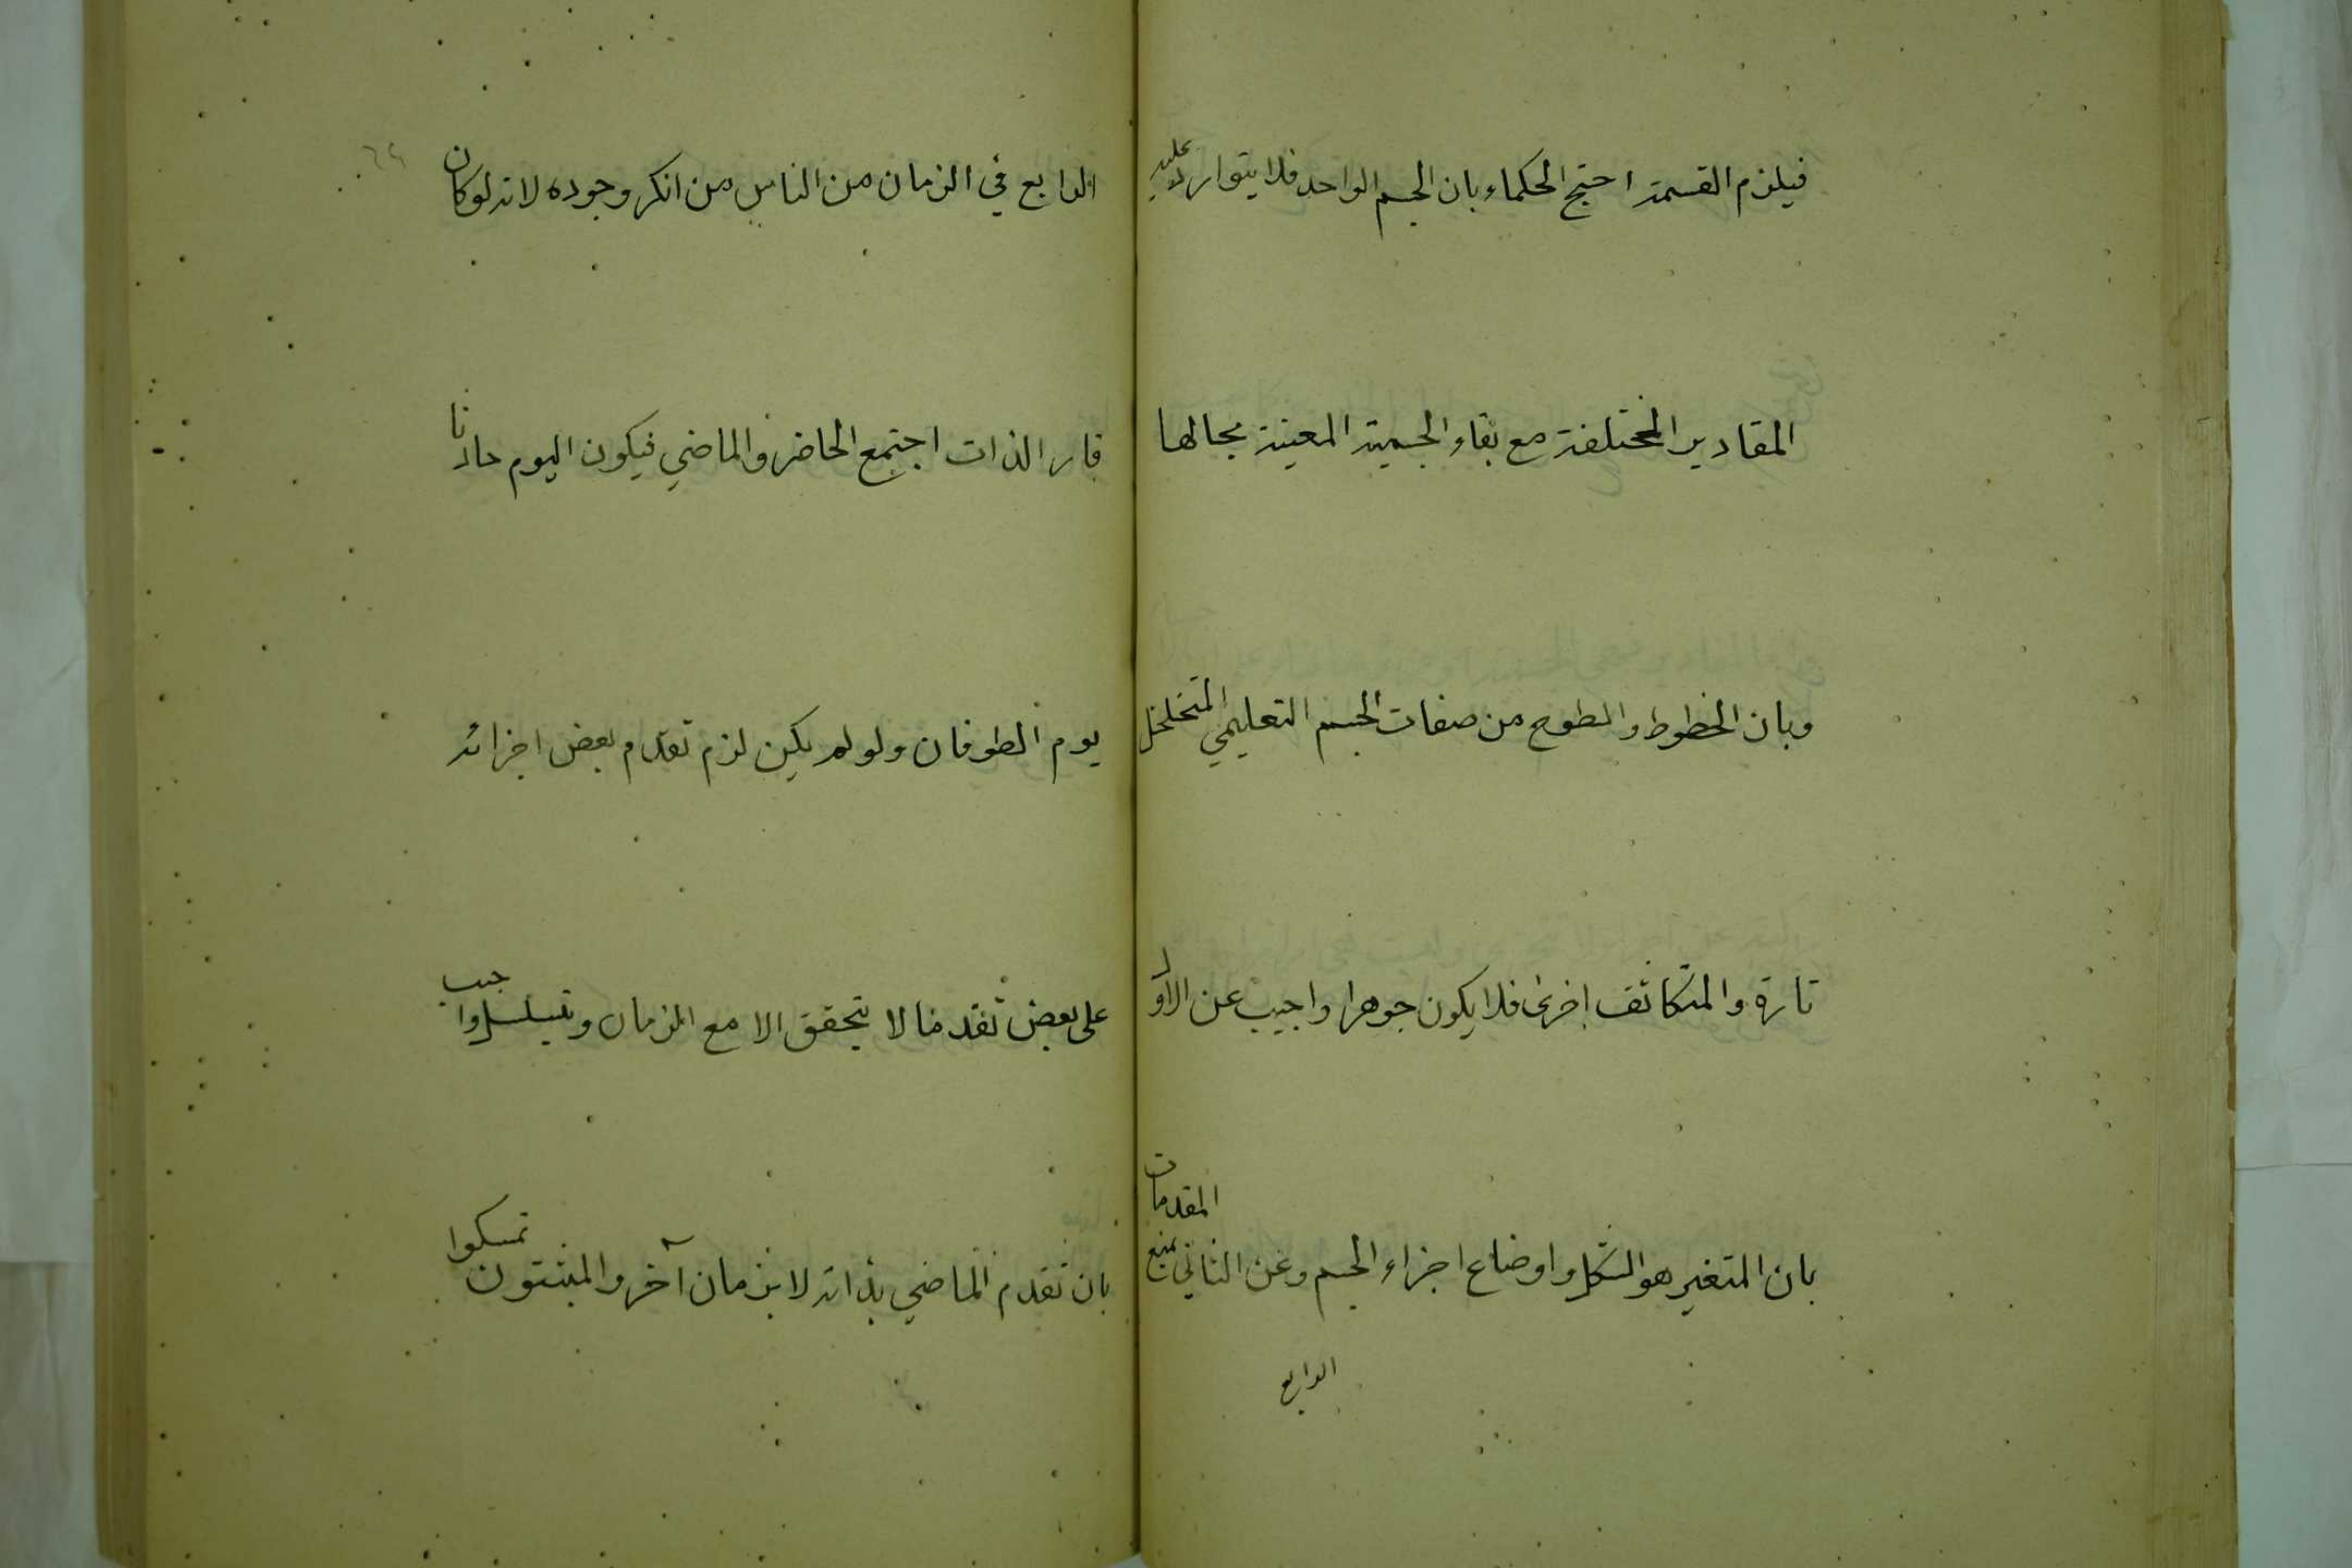 فيلزم القسمة احتج الحكماء بان الجسم الواحد قد يتوارد عليه
المقادير المختلفة مع بقاء الجسمية المعينة بحالها
وبان الخطوط والسطوح من صفات الجسم التعليمي المتخلخل
تارة والمتكاثف اخرى فلا يكون جوهرا واجيب عن الاول
بان المتغير هو الشكل واوضاع اجزاء الجسم وعن الثاني بمنع المقدمات
الرابع
الرابع في الزمان من الناس من انكر وجوده لانه لو كان
قار الذات اجتمع الحاضر والماضي فيكون اليوم حادثا
يوم الطوفان ولو لم يكن لزم تقدم بعض اجزائه
على بعض تقدما لا يتحقق الا مع الزمان وتسلسل واجيب
بان تقدم الماضي بذاته لا بزمان آخر والمثبتون تمسكوا